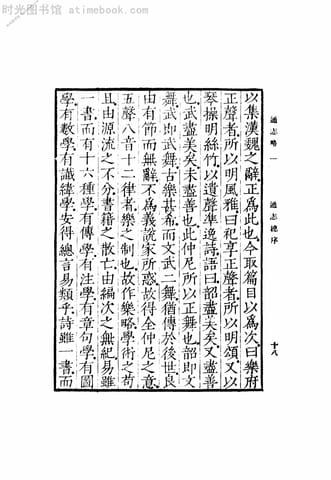 时光图书馆 - atimebook.com
通志略一 通志總序 十八
以集漢魏之辭正爲此也今取篇目以爲次曰樂府
正聲者所以明風雅曰祀享正聲者所以明頌又以
琴操明絲竹以遺聲準逸詩語曰韶盡美矣又盡善
也武盡美矣未盡善也此仲尼所以正舞也韶即文
舞武即武舞古樂甚希而文武二舞猶傳於後世良
由有節而無辭不爲義說家所惑故得全仲尼之意
五聲八音十二律者樂之制也故作樂略學術之苟
且由源流之不分書籍之散亡由編次之無紀易雖
一書而有十六種學有傳學有注學有章句學有圖
學有數學有讖緯學安得總言易類乎詩雖一書而